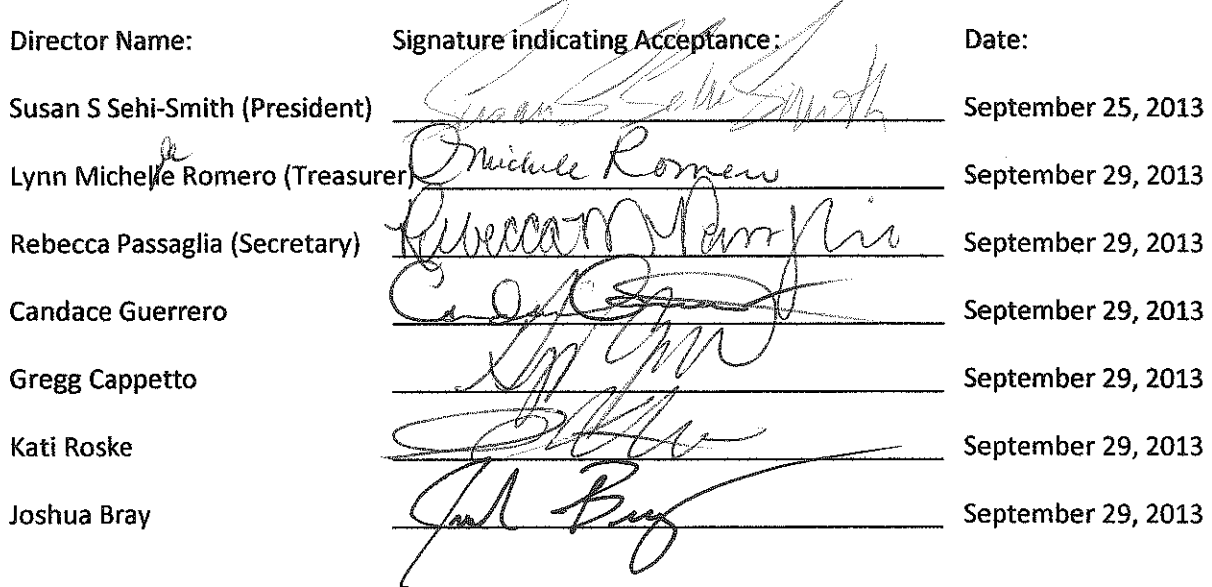 Director Name: Signature indicating Acceptance: Date:
Susan S Sehi-Smith (President) Susan S Sehi Smith September 25, 2013
Lynn Michelle Romero (Treasurer) Michele Romero September 29, 2013
Rebecca Passaglia (Secretary) Rebecca M Passaglia September 29, 2013
Candace Guerrero September 29, 2013
Gregg Cappetto September 29, 2013
Kati Roske September 29, 2013
Joshua Bray Josh Bray September 29, 2013